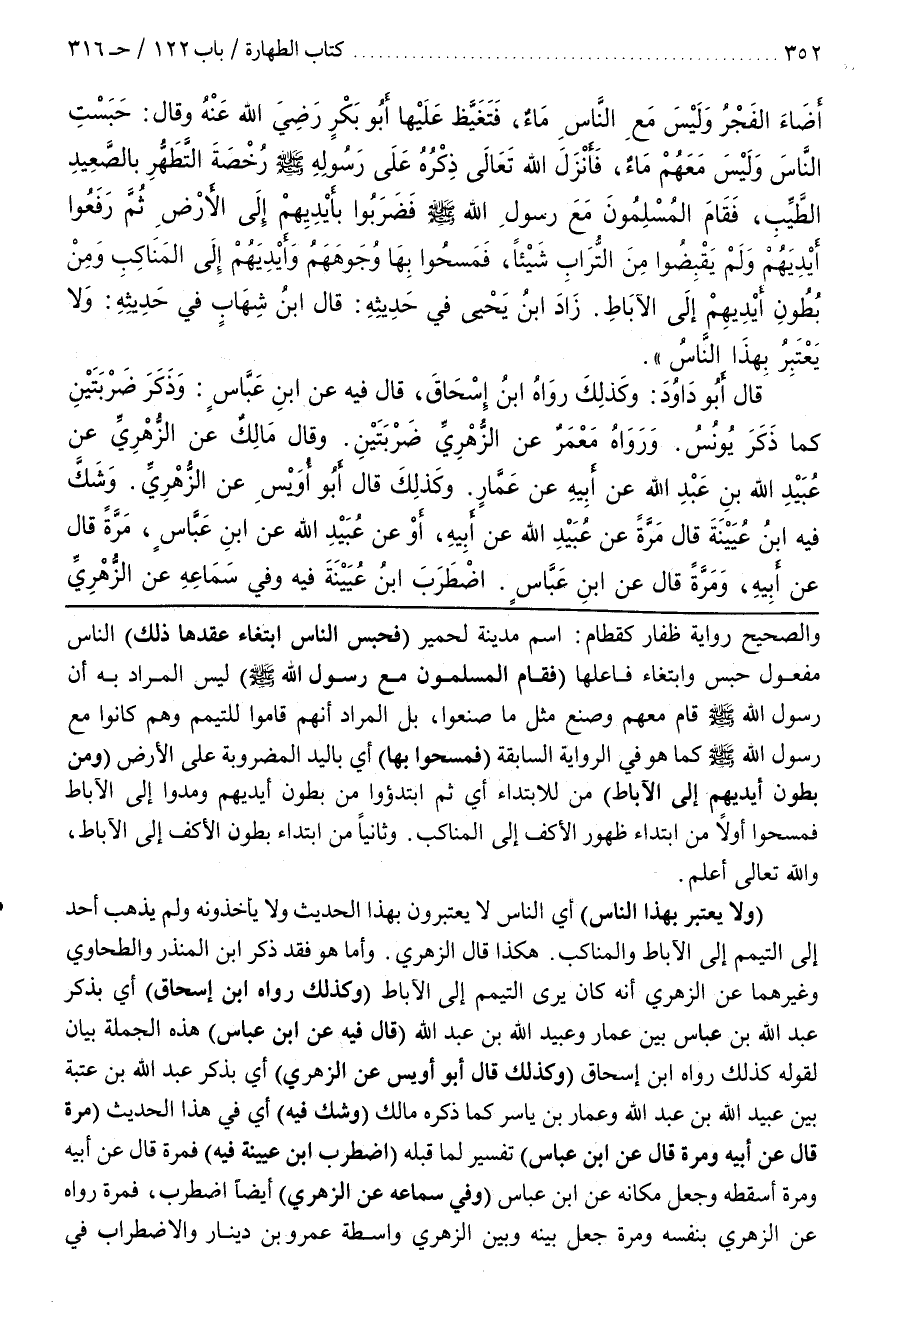 ٣٥٢ ........................................ كتاب الطهارة / باب ١٢٢ / حـ ٣١٦
أَضَاءَ الفَجْرُ وَلَيْسَ مَع ِ النَّاس ِ مَاءٌ، فَتَغَيَّظَ عَلَيْها أَبُو بَكْرٍ رَضِيَ الله عَنْهُ وقال: حَبَسْتِ
النَّاسَ وَلَيْسَ مَعَهُمْ مَاءٌ، فَأَنْزَلَ الله تَعَالَى ذِكْرُهُ عَلَى رَسُولِهِ ﷺ رُخْصَةَ التَّطَهُّرِ بالصَّعِيدِ
الطَّيِّبِ، فَقَامَ المُسْلِمُونَ مَعَ رسول ِ الله ﷺ فَضَرَبُوا بأَيْدِيهِمْ إِلَى الأَرْض ِ ثُمَّ رَفَعُوا
أَيْدِيَهُمْ وَلَمْ يَقْبِضُوا مِنَ التُّرَابِ شَيْئاً، فَمَسحُوا بِهَا وُجَوهَهُمْ وَأَيْدِيَهُمْ إِلَى المَنَاكِبِ وَمِنْ
بُطُونِ أَيْدِيهِمْ إِلَى الآبَاطِ. زَادَ ابنُ يَحْيى في حَدِيثِهِ: قال ابنُ شِهَابٍ في حَدِيثِهِ: وَلا
يَعْتَبِرُ بِهذَا النَّاسُ».
قال أَبُو دَاوُدَ: وكَذلِكَ رَوَاهُ ابنُ إِسْحَاقَ، قال فيه عن ابنِ عَبَّاس ٍ: وَذَكَرَ ضَرْبَتَيْنِ
كما ذَكَرَ يُونُسُ. وَرَوَاهُ مَعْمَرٌ عن الزُّهْرِيِّ ضَرْبَتَيْنِ. وقال مَالِكٌ عن الزُّهْرِيِّ عن
عُبَيْدِ الله بنِ عَبْدِ الله عن أَبِيهِ عن عَمَّارٍ. وكَذلِكَ قال أَبُو أُوَيْس ٍ عن الزُّهْرِيِّ. وَشَكَّ
فيه ابنُ عُيَيْنَةَ قال مَرَّةً عن عُبَيْدِ الله عن أَبِيهِ، أَوْ عن عُبَيْدِ الله عن ابنِ عَبَّاس ٍ، مَرَّةً قال
عن أَبِيهِ، وَمَرَّةً قال عن ابنِ عَبَّاس ٍ. اضْطَرَبَ ابنُ عُيَيْنَةَ فيه وفي سَمَاعِهِ عن الزُّهْرِيِّ
والصحيح رواية ظفار كقطام: اسم مدينة لحمير (فحبس الناس ابتغاء عقدها ذلك) الناس
مفعول حبس وابتغاء فاعلها (فقام المسلمون مع رسول الله ﷺ) ليس المراد به أن
رسول الله ﷺ قام معهم وصنع مثل ما صنعوا، بل المراد أنهم قاموا للتيمم وهم كانوا مع
رسول الله ﷺ كما هو في الرواية السابقة (فمسحوا بها) أي باليد المضروبة على الأرض (ومن
بطون أيديهم إلى الآباط) من للابتداء أي ثم ابتدؤوا من بطون أيديهم ومدوا إلى الآباط
فمسحوا أولاً من ابتداء ظهور الأكف إلى المناكب. وثانياً من ابتداء بطون الأكف إلى الآباط،
والله تعالى أعلم.
(ولا يعتبر بهذا الناس) أي الناس لا يعتبرون بهذا الحديث ولا يأخذونه ولم يذهب أحد
إلى التيمم إلى الآباط والمناكب. هكذا قال الزهري. وأما هو فقد ذكر ابن المنذر والطحاوي
وغيرهما عن الزهري أنه كان يرى التيمم إلى الآباط (وكذلك رواه ابن إسحاق) أي بذكر
عبد الله بن عباس بين عمار وعبيد الله بن عبد الله (قال فيه عن ابن عباس) هذه الجملة بيان
لقوله كذلك رواه ابن إسحاق (وكذلك قال أبو أويس عن الزهري) أي بذكر عبد الله بن عتبة
بين عبيد الله بن عبد الله وعمار بن ياسر كما ذكره مالك (وشك فيه) أي في هذا الحديث (مرة
قال عن أبيه ومرة قال عن ابن عباس) تفسير لما قبله (اضطرب ابن عيينة فيه) فمرة قال عن أبيه
ومرة أسقطه وجعل مكانه عن ابن عباس (وفي سماعه عن الزهري) أيضاً اضطرب، فمرة رواه
عن الزهري بنفسه ومرة جعل بينه وبين الزهري واسطة عمرو بن دينار والاضطراب في